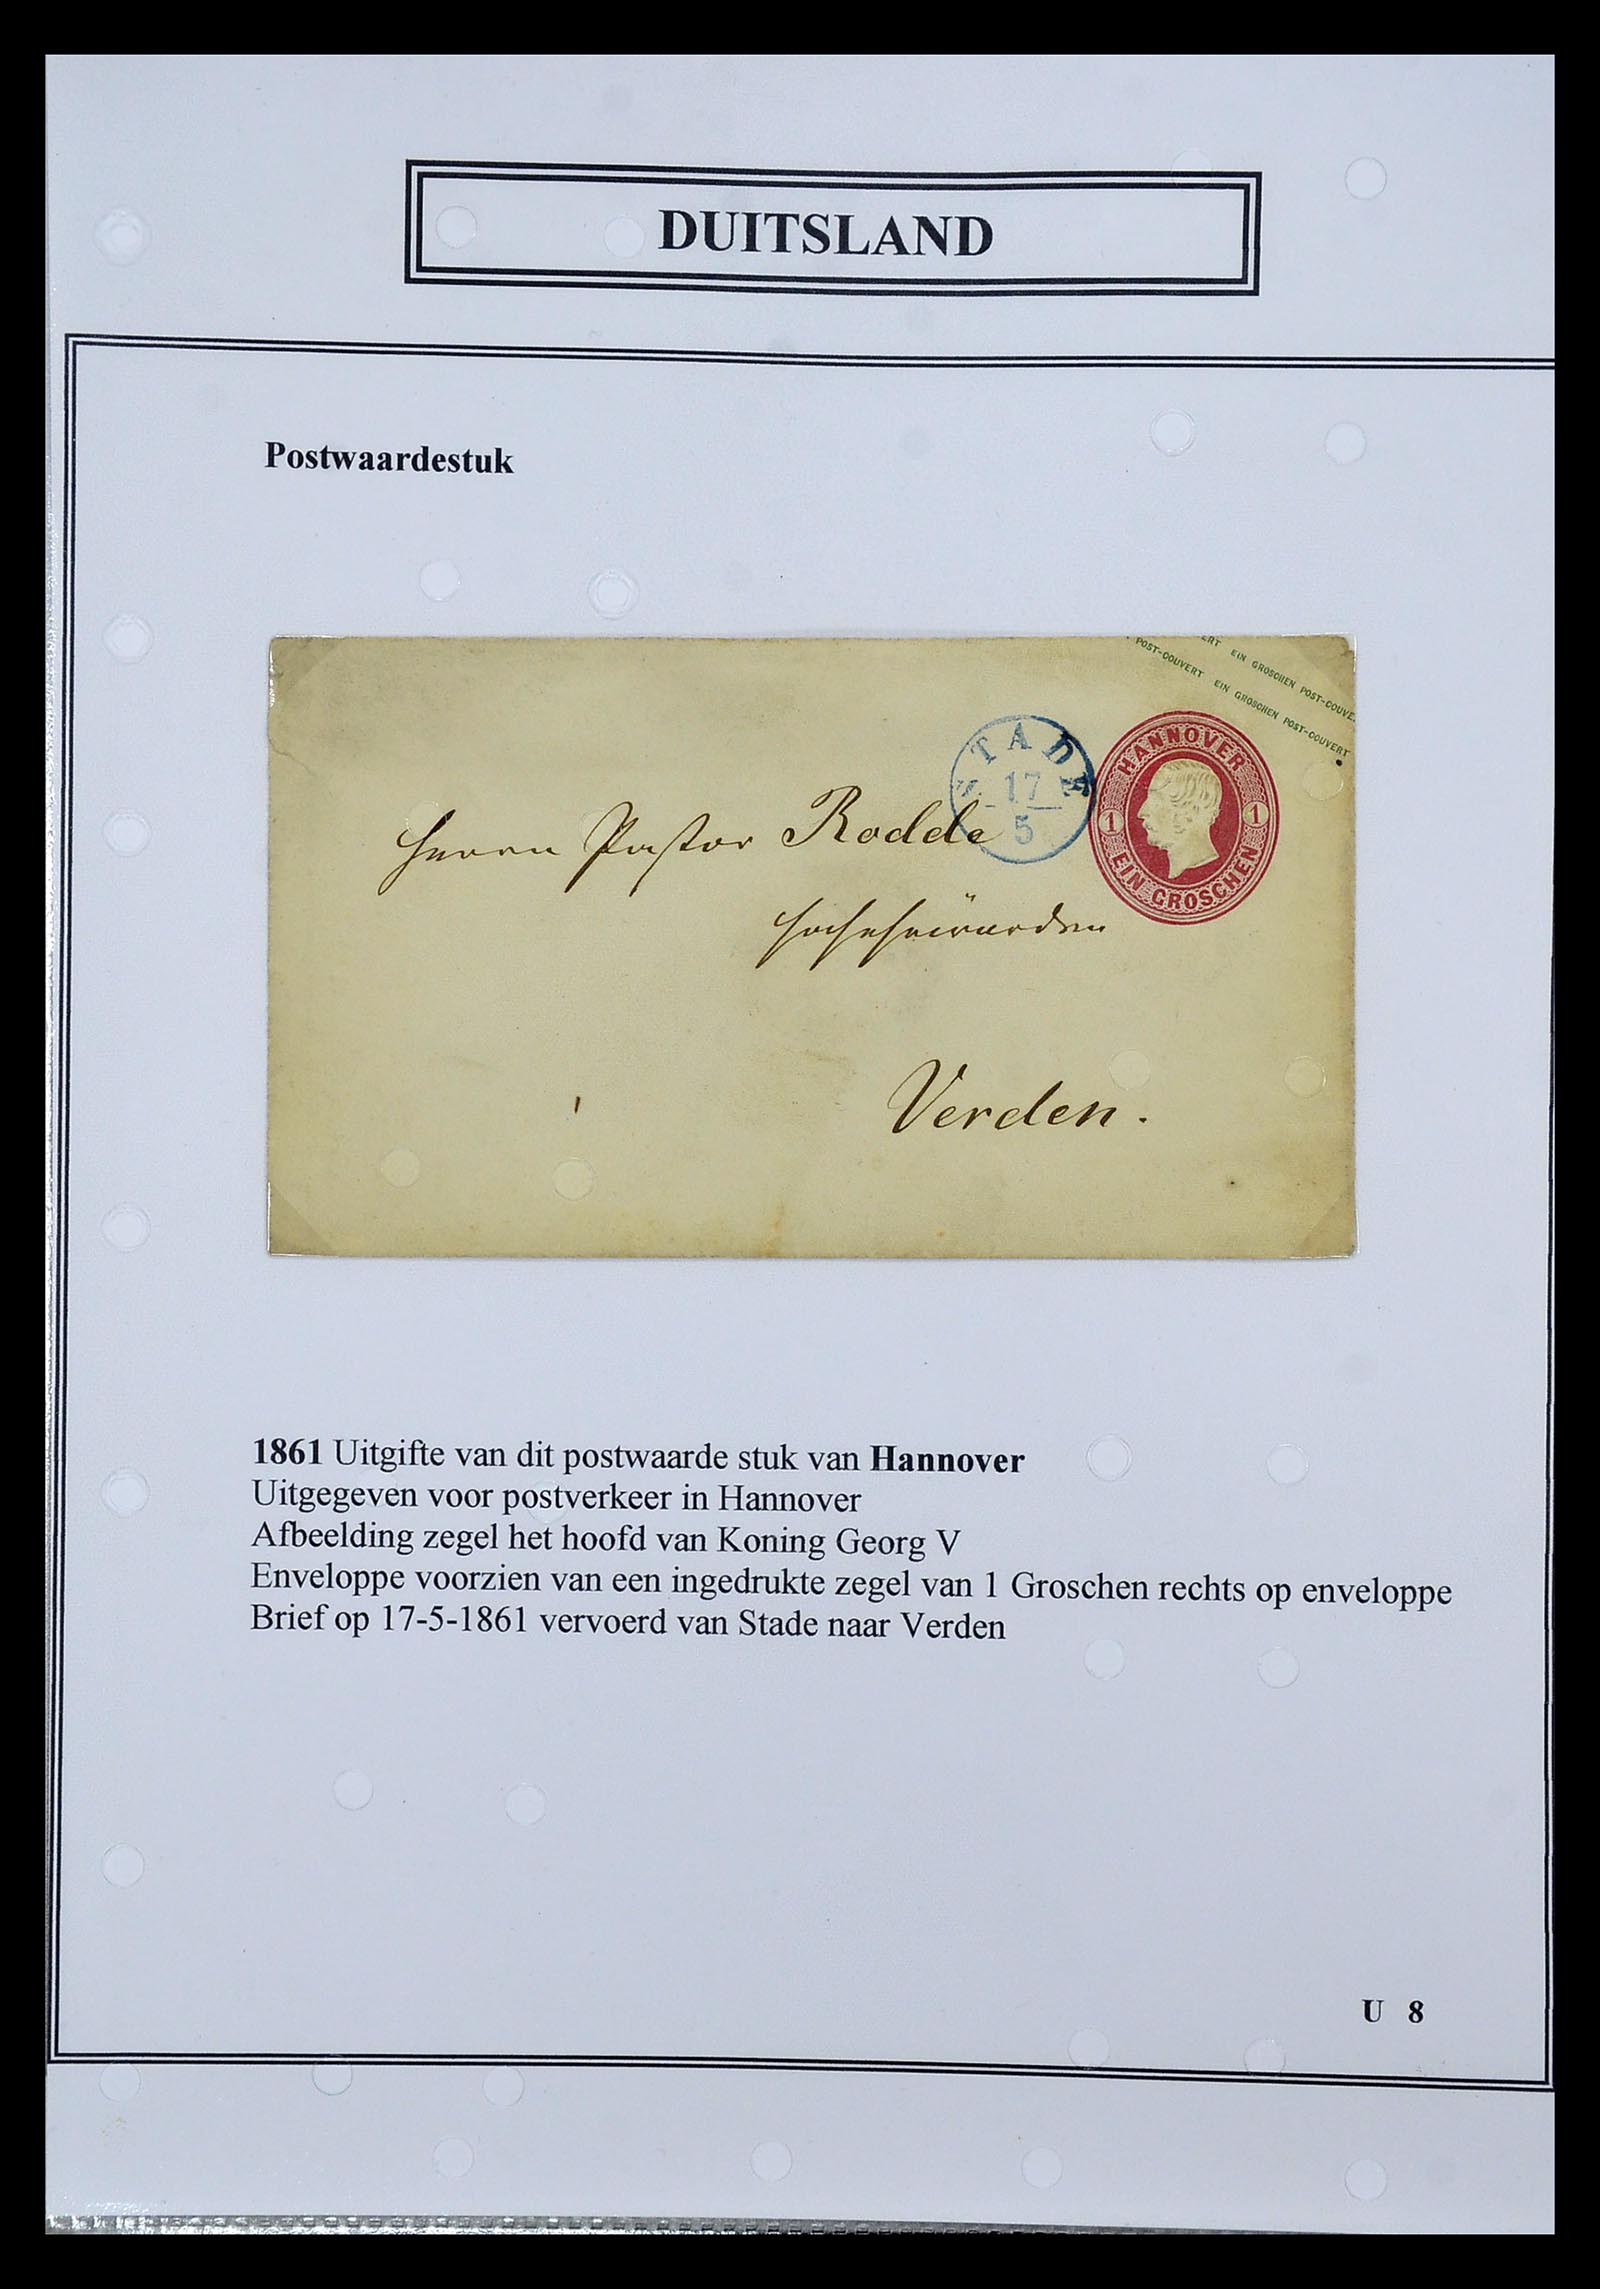 DUITSLAND
Postwaardestuk
ERT EIN GROSCHEN POST-COUVE
POST-COUVERT EIN GROSCHEN POST-COUVERT
STADE
17
5
HANNOVER
1 1
EIN GROSCHEN
Herrn Pastor Rodde
Hochehrwürden
Verden.
1861 Uitgifte van dit postwaarde stuk van Hannover
Uitgegeven voor postverkeer in Hannover
Afbeelding zegel het hoofd van Koning Georg V
Enveloppe voorzien van een ingedrukte zegel van 1 Groschen rechts op enveloppe
Brief op 17-5-1861 vervoerd van Stade naar Verden
U 8